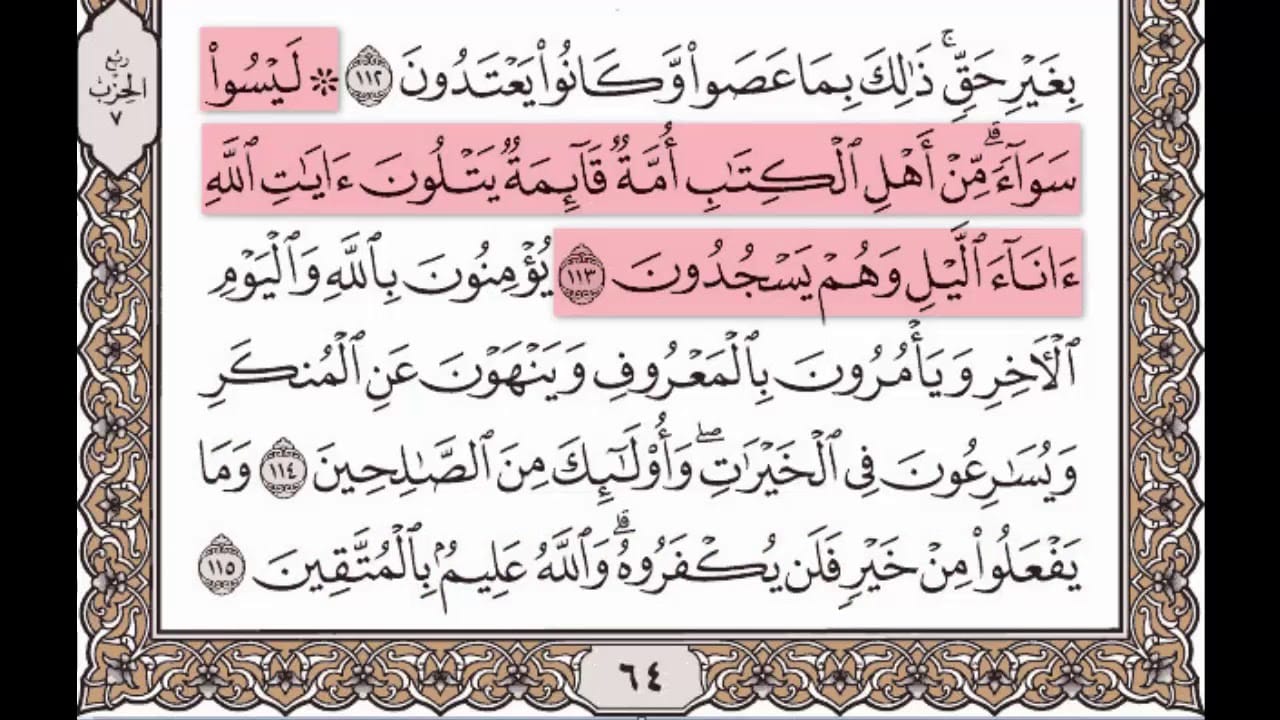 ربع
الحزب
٧
بِغَيْرِ حَقٍّۚ ذَٰلِكَ بِمَا عَصَوا۟ وَّكَانُوا۟ يَعْتَدُونَ ١١٢ ۞ لَيْسُوا۟
سَوَآءًۗ مِّنْ أَهْلِ ٱلْكِتَٰبِ أُمَّةٌ قَآئِمَةٌ يَتْلُونَ ءَايَٰتِ ٱللَّهِ
ءَانَآءَ ٱلَّيْلِ وَهُمْ يَسْجُدُونَ ١١٣ يُؤْمِنُونَ بِٱللَّهِ وَٱلْيَوْمِ
ٱلْأَخِرِ وَيَأْمُرُونَ بِٱلْمَعْرُوفِ وَيَنْهَوْنَ عَنِ ٱلْمُنكَرِ
وَيُسَٰرِعُونَ فِى ٱلْخَيْرَٰتِۖ وَأُو۟لَٰٓئِكَ مِنَ ٱلصَّٰلِحِينَ ١١٤ وَمَا
يَفْعَلُوا۟ مِنْ خَيْرٍ فَلَن يُكْفَرُوهُۗ وَٱللَّهُ عَلِيمٌۢ بِٱلْمُتَّقِينَ ١١٥
٦٤